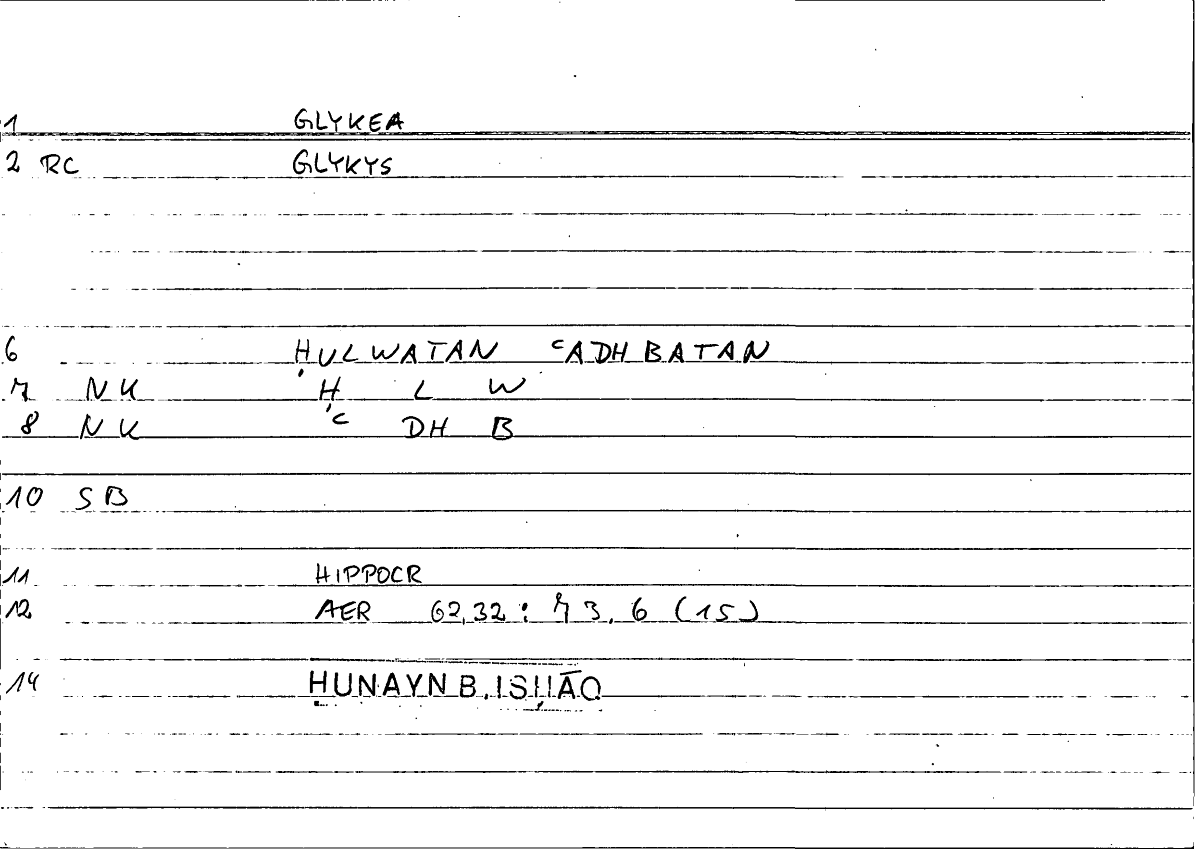 1 GLYKEA
2 RC GLYKYS
6 ḤULWATAN ᶜADHBATAN
7 NK Ḥ L W
8 NK ᶜ DH B
10 SB
11 HIPPOCR
12 AER 62,32 : 73,6 (15)
14 ḤUNAYN B. ISḤĀQ